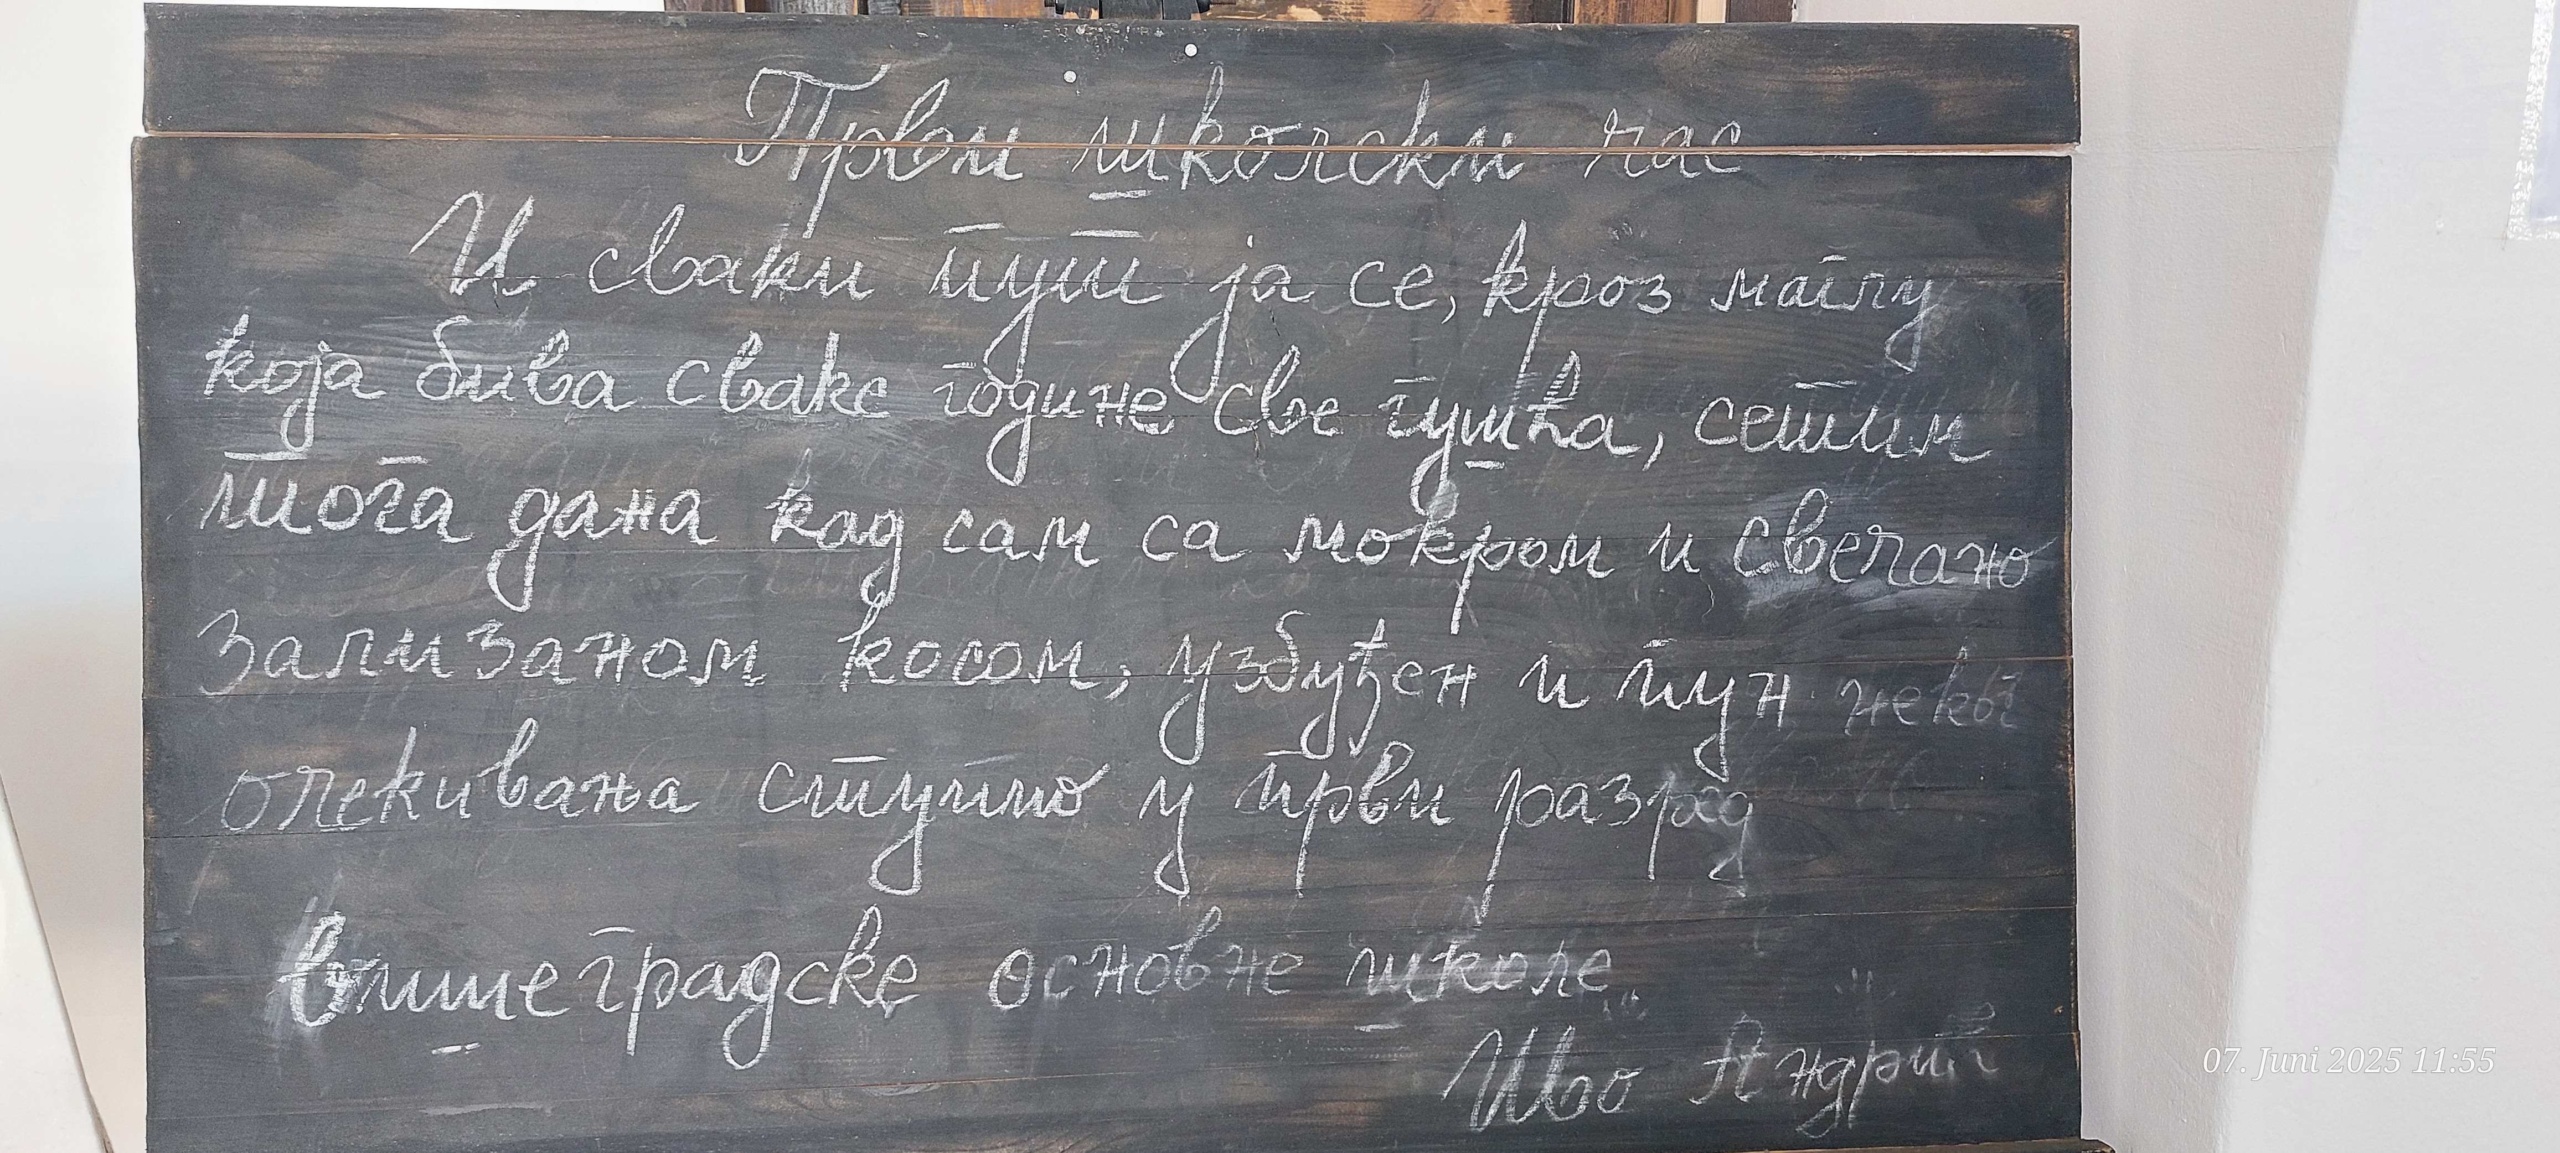 Први школски час
И сваки пут ја се, кроз маглу
која бива сваке године све гушћа, сетим
тога дана кад сам са мокром и свечано
зализаном косом, узбуђен и пун
очекивања ступио у први разред
вишеградске основне школе
Иво Андрић
07. Juni 2025 11:55